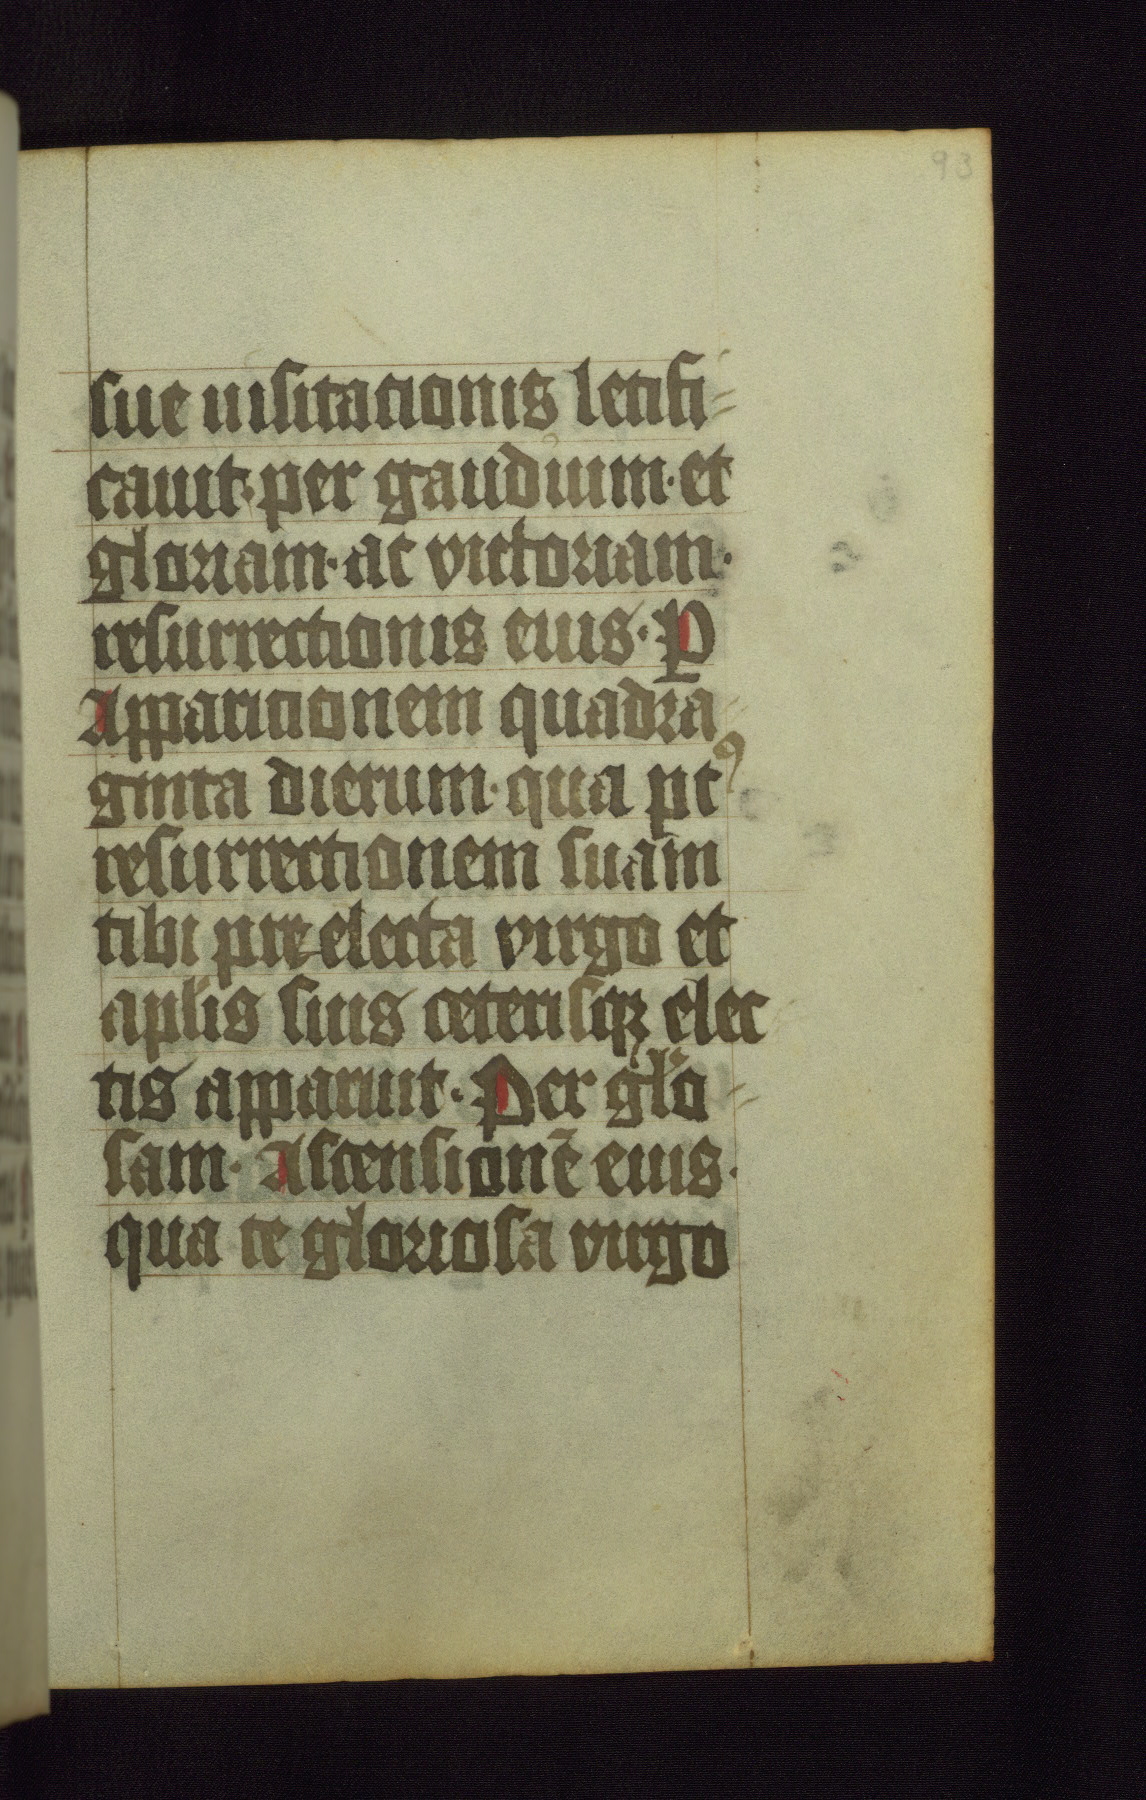 93
sue uisitacionis letifi=
cauit· per gaudium· et
gloriam· ac victoriam·
resurrectionis eius· ꝑ
Apparicionem quadra=
ginta dierum· qua pꝰt
resurrectionem suam
tibi pre electa virgo et
apl'is suis ceterisqꝫ elec
tis apparuit· Per gl'o=
sam· Ascensionē eius·
qua te gloriosa virgo